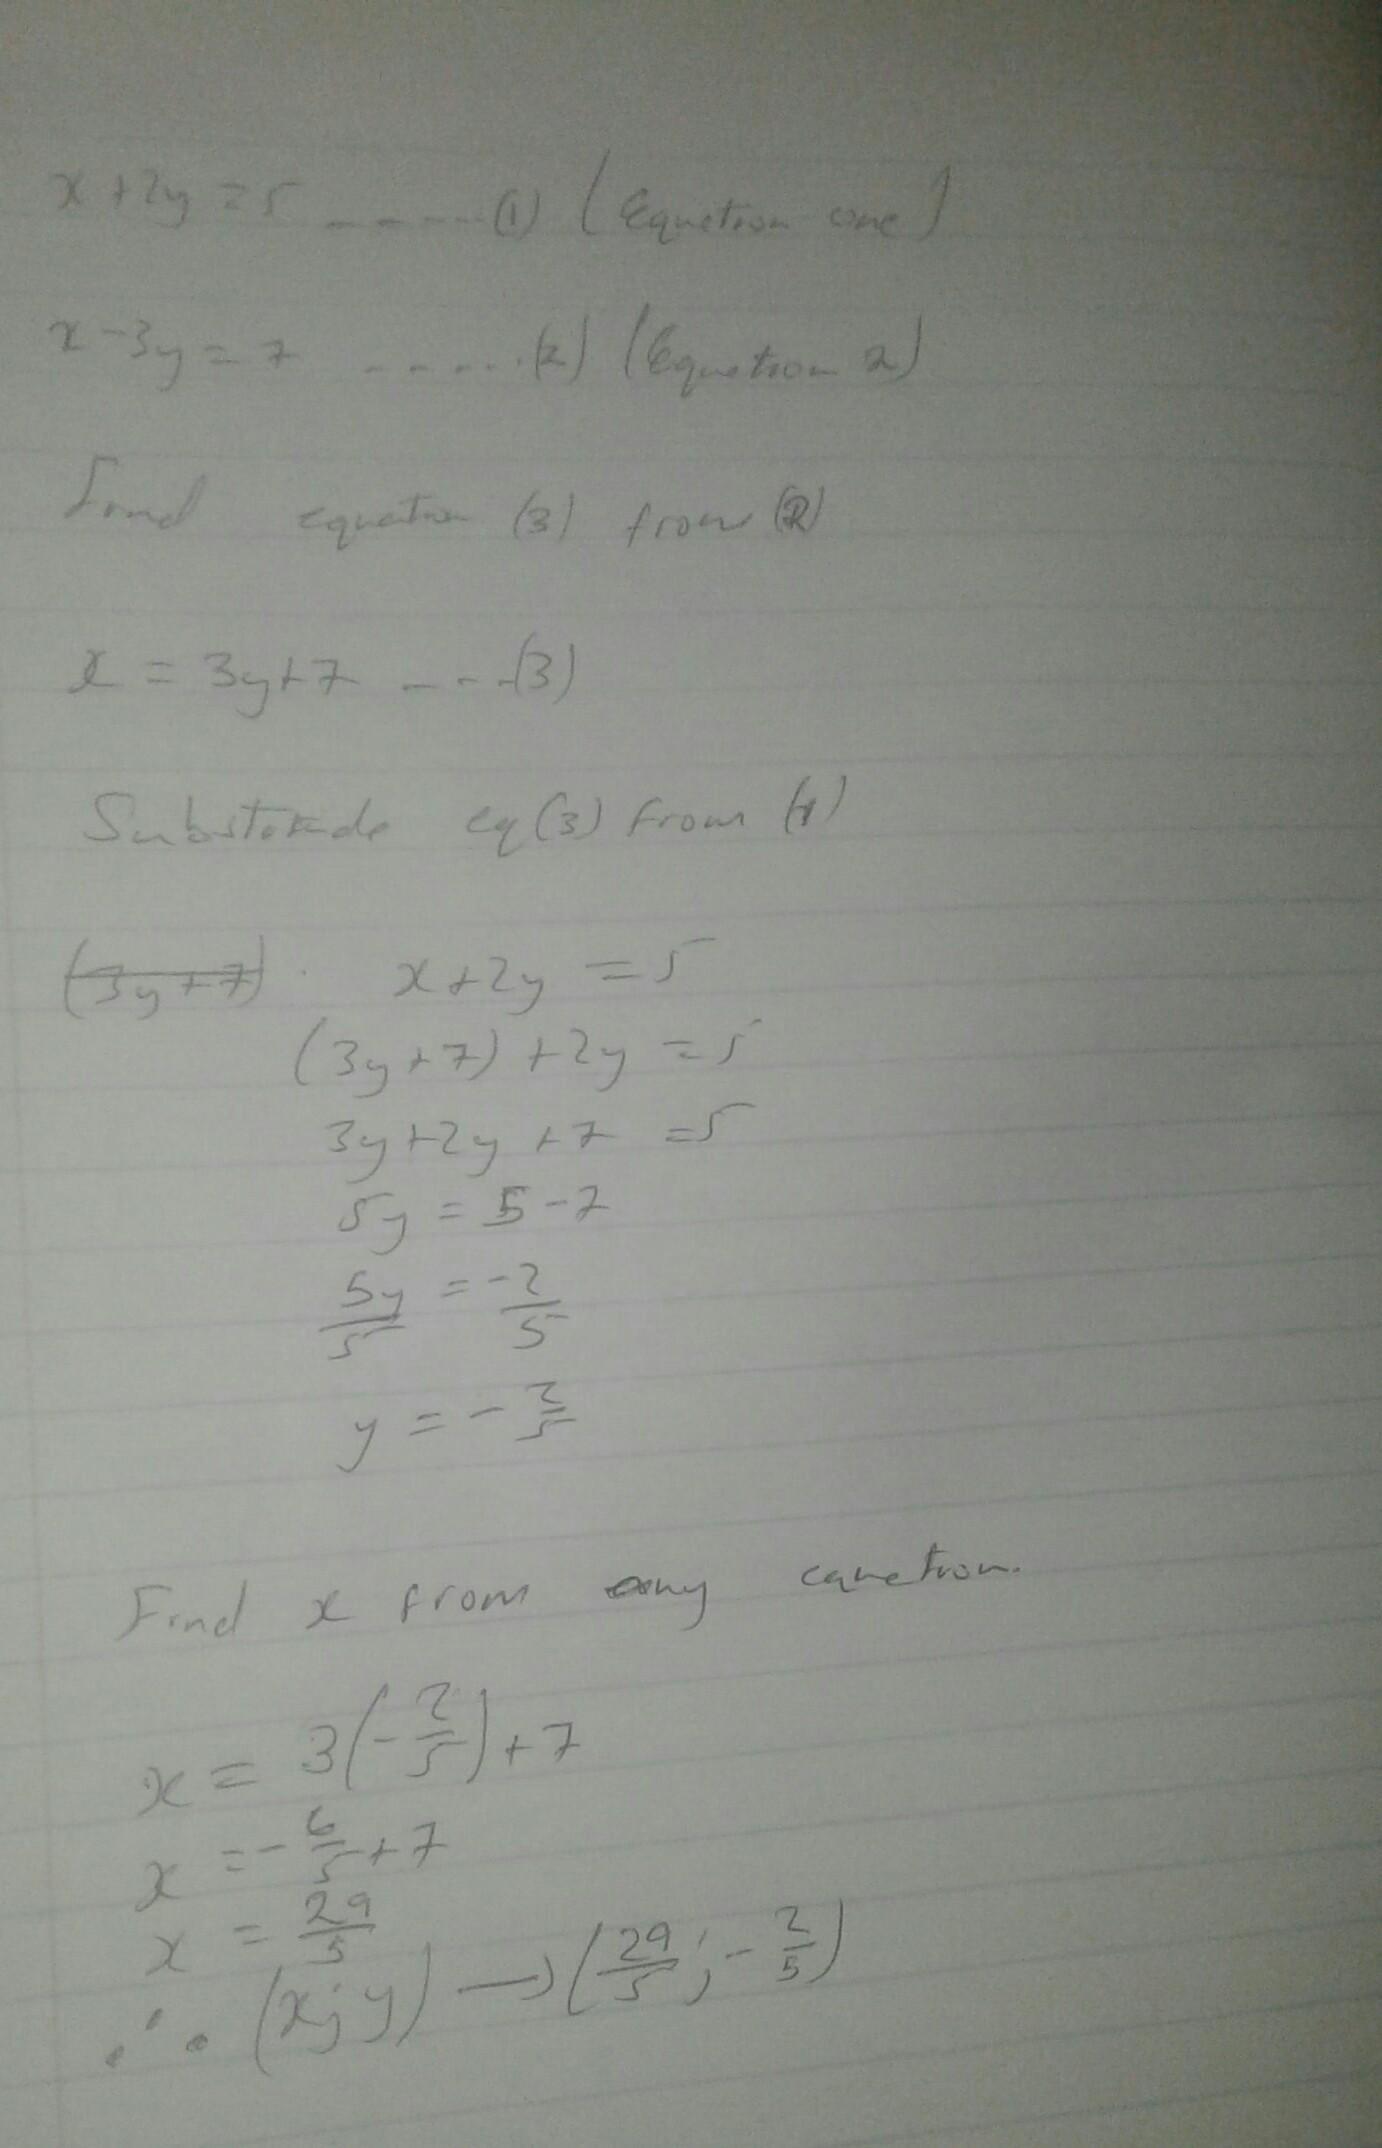 x + 2y = 5 ------(1) (Equation one)
x - 3y = 7 ......(2) (Equation 2)
Find equation (3) from (2)
x = 3y + 7 ---(3)
eq(3) from (1)
(3y + 7) . x + 2y = 5
(3y + 7) + 2y = 5
3y + 2y + 7 = 5
5y = 5 - 7
5y/5 = -2/5
y = -2/5
Find x from any equation.
x = 3(-2/5) + 7
x = -6/5 + 7
x = 29/5
∴ (x; y) → (29/5; -2/5)